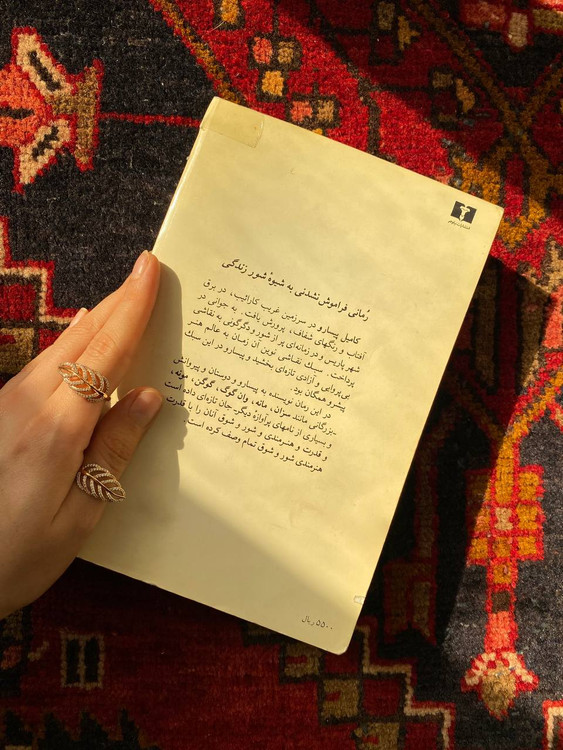 رُمانی فراموش نشدنی به شیوهٔ شور زندگی
کامیل پیسارو در سرزمین غریب کارائیب، در برق
آفتاب و رنگهای شفاف، پرورش یافت. به جوانی در
شهر پاریس و در زمانه‌ای پر از شور و دگرگونی به نقاشی
پرداخت. سبک نقاشی نوین آن زمان به عالم هنر
بی‌پروایی و آزادی تازه‌ای بخشید و پیسارو در این سبک
پیشرو همگان بود.
در این رمان نویسنده به پیسارو و دوستان و پیروانش
ـ بزرگانی مانند سزان، مانه، وان گوگ، گوگن، مونه،
و بسیاری از نامهای پرآوازهٔ دیگر ـ جان تازه‌ای داده است
و قدرت و هنرمندی و شور و شوق آنان را با قدرت و
هنرمندی شور و شوق تمام وصف کرده است.
۵۵۰۰ ریال